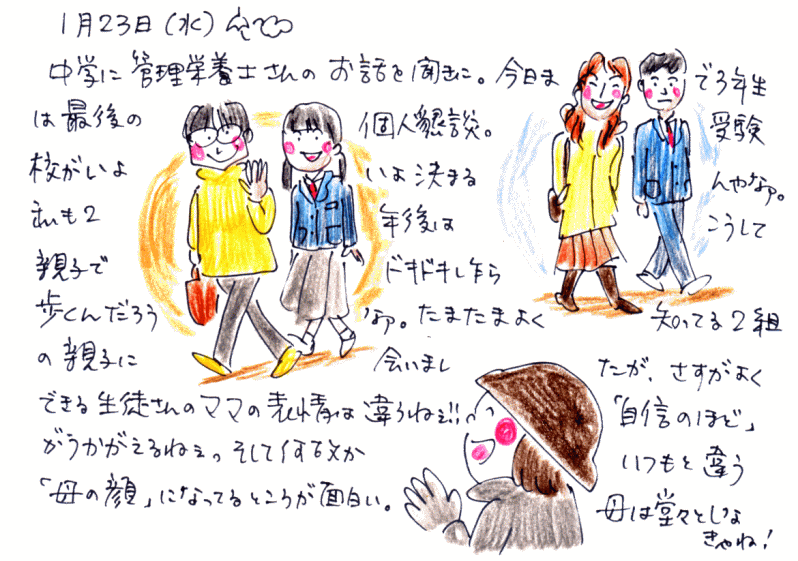 1月23日(水)
中学に管理栄養士さんのお話を聞きに。今日まで3年生
は最後の個人懇談。受験
校がいよいよ決まるんやなァ。
われも2年後はこうして
親子でドキドキし乍ら
歩くんだろうなァ。たまたまよく知ってる2組
の親子に会いましたが、さすがよく
できる生徒さんのママの表情は違うねぇ!!「自信のほど」
がうかがえるねぇっ そして何故かいつもと違う
「母の顔」になってるところが面白い。母は堂々としな
きゃね!